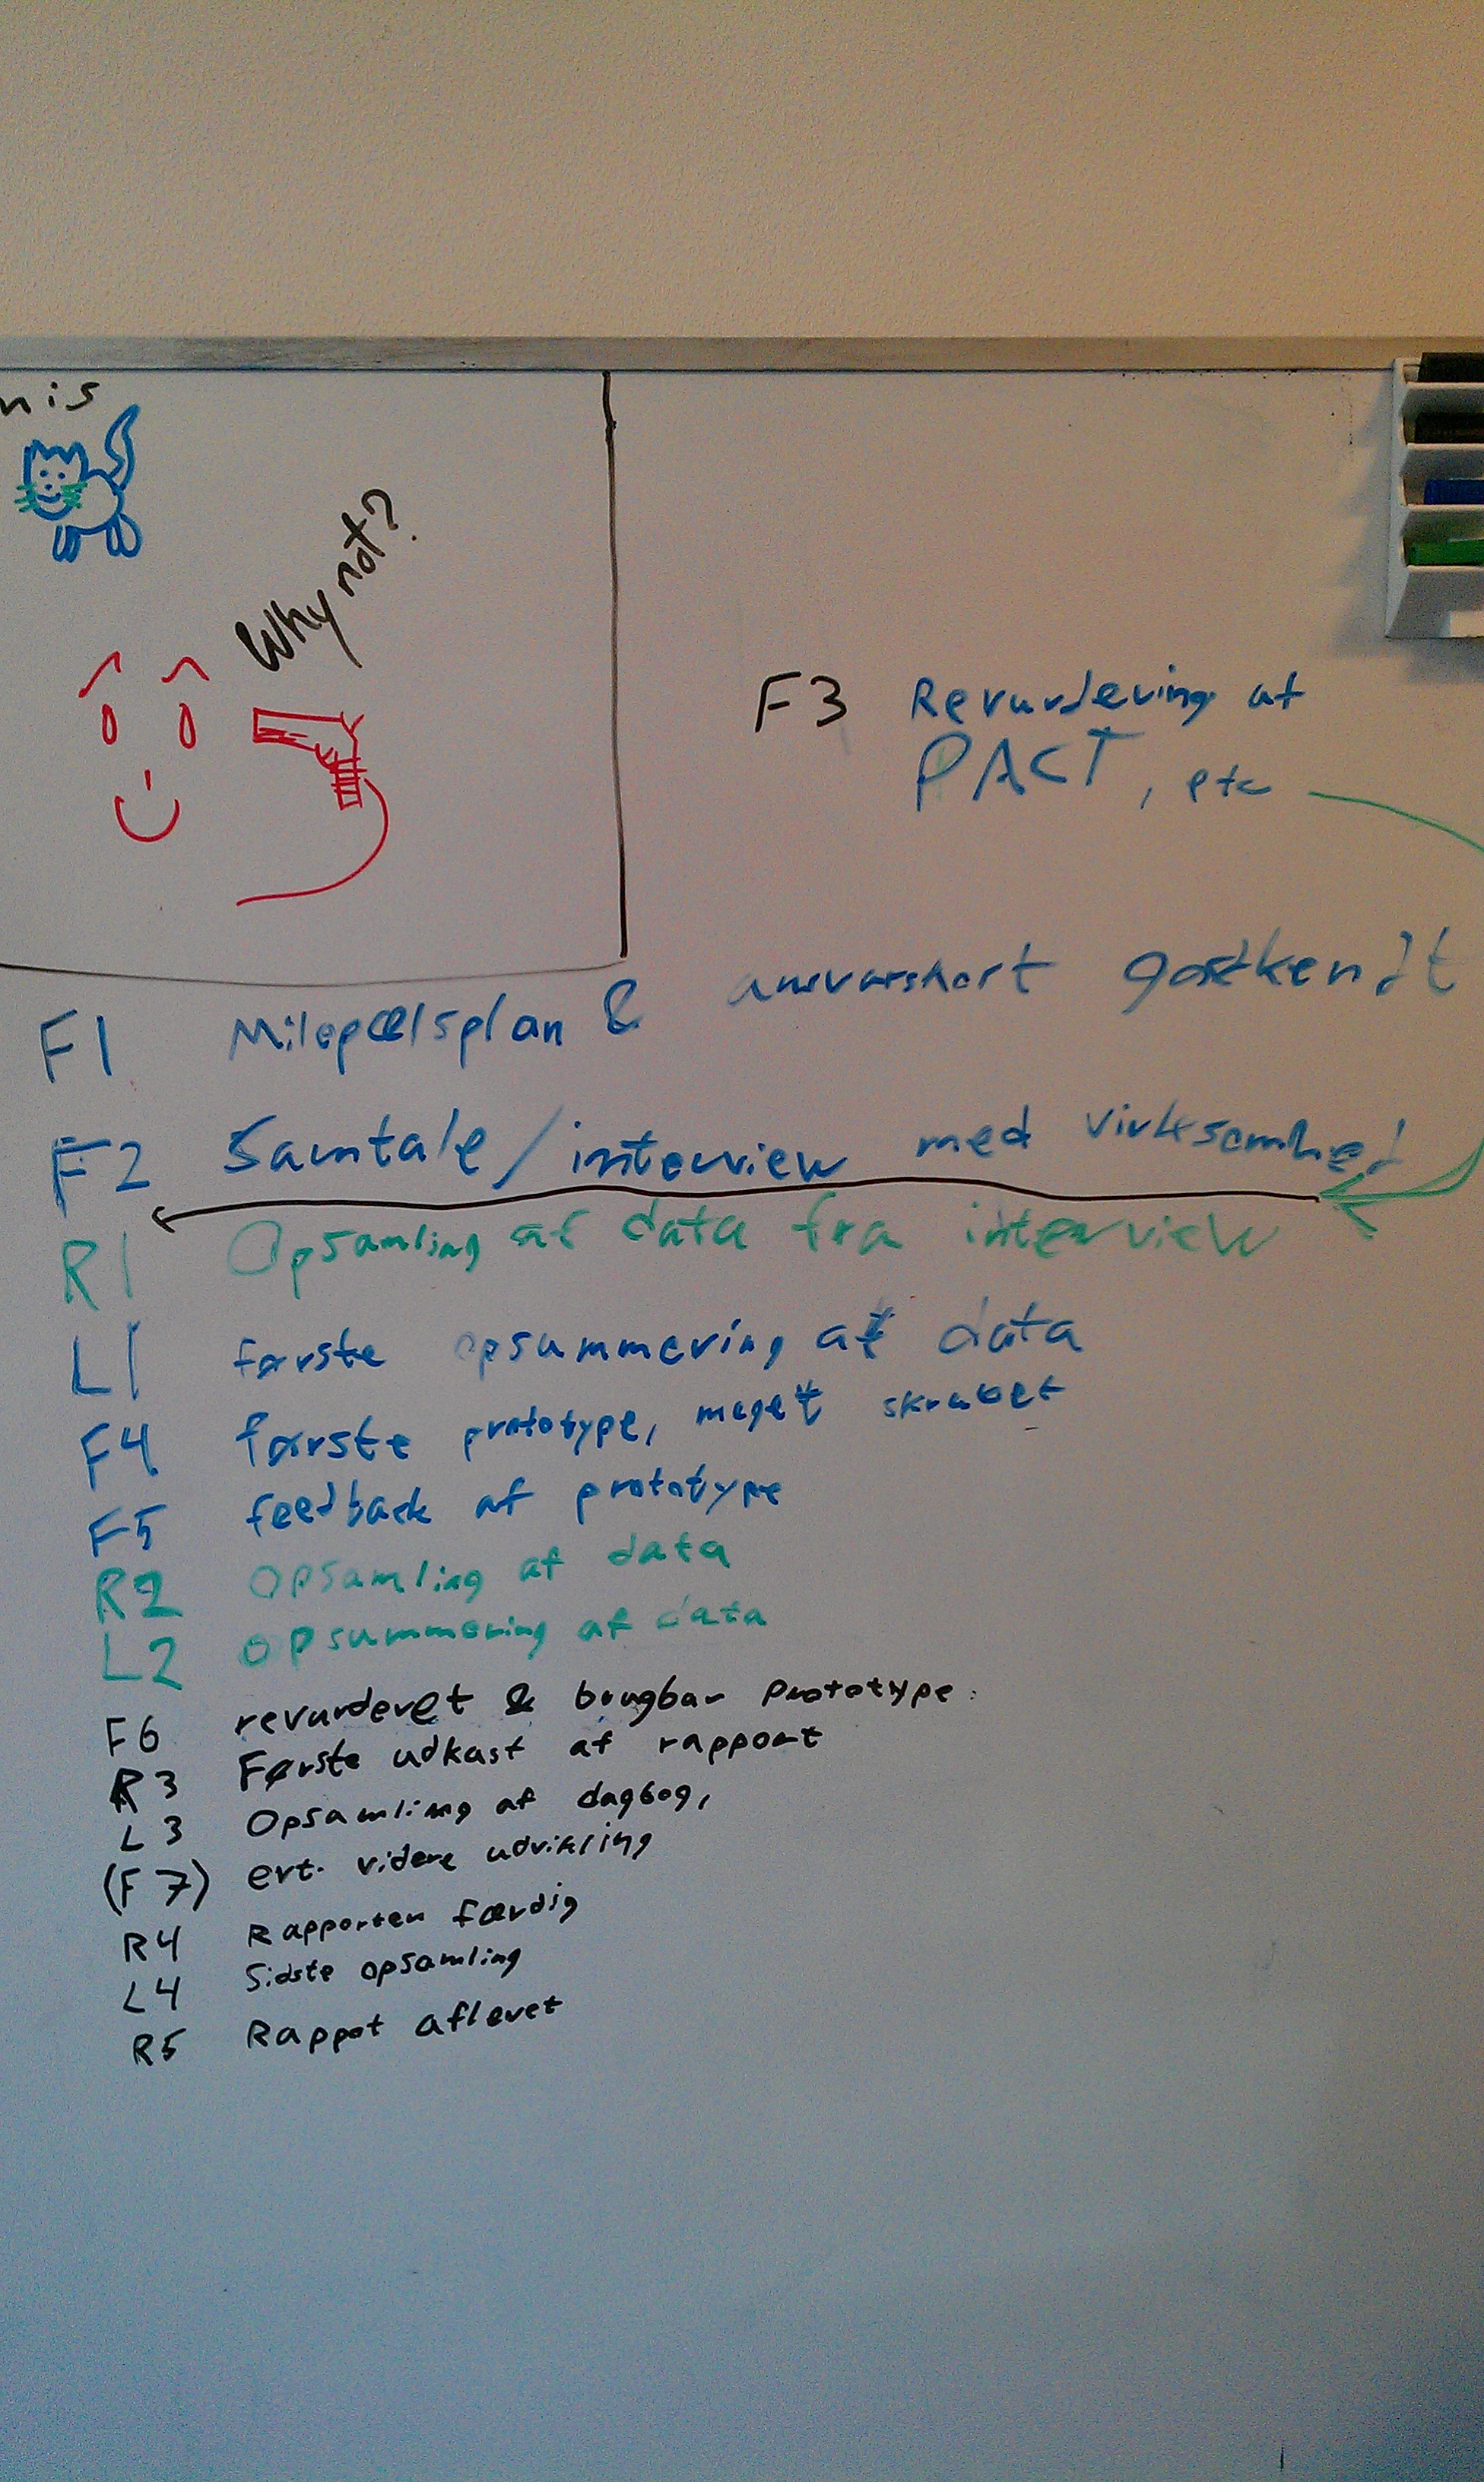 nis
Why not?
F3 Revurdering af
PACT, etc
F1 Milepælsplan & ansvarskort godtkendt
F2 Samtale/interview med virksomhed
R1 Opsamling af data fra interview
L1 første opsummering af data
F4 første prototype, meget skrabet
F5 feedback af prototype
R2 Opsamling af data
L2 opsummering af data
F6 revurderet & brugbar prototype.
R3 Første udkast af rapport
L3 Opsamling af dagbog,
(F7) evt. videre udvikling
R4 Rapporten færdig
L4 Sidste opsamling
R5 Rappot aflevet